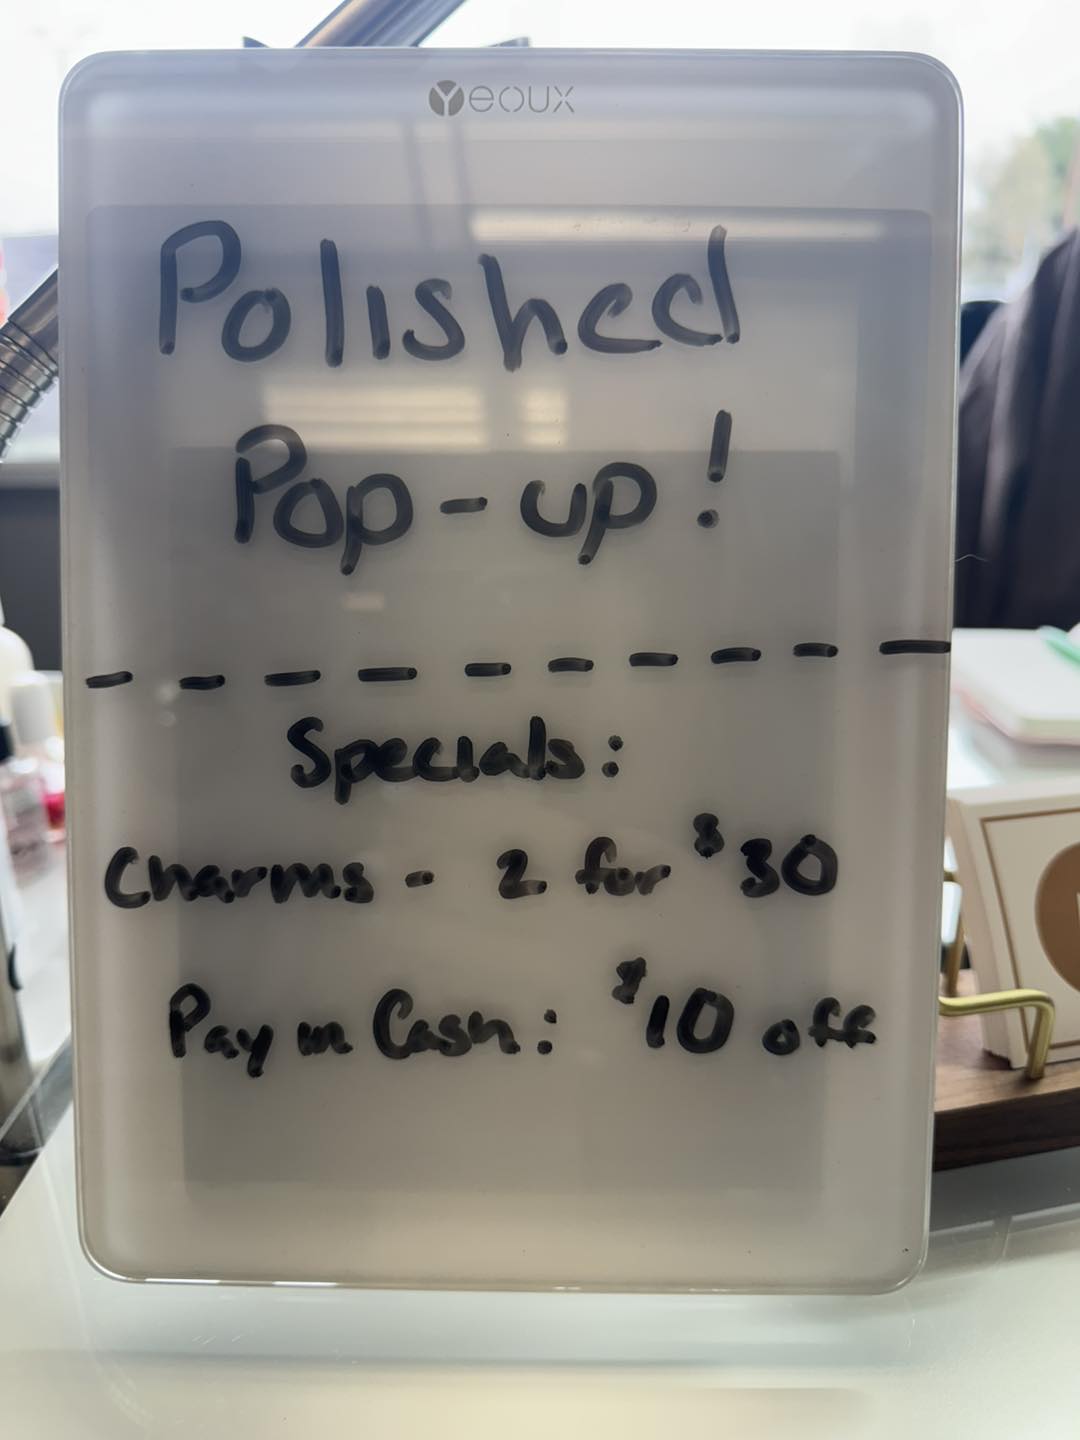 Yeoux
Polished
Pop-up!
Specials:
Charms - 2 for $30
Pay in Cash: $10 off